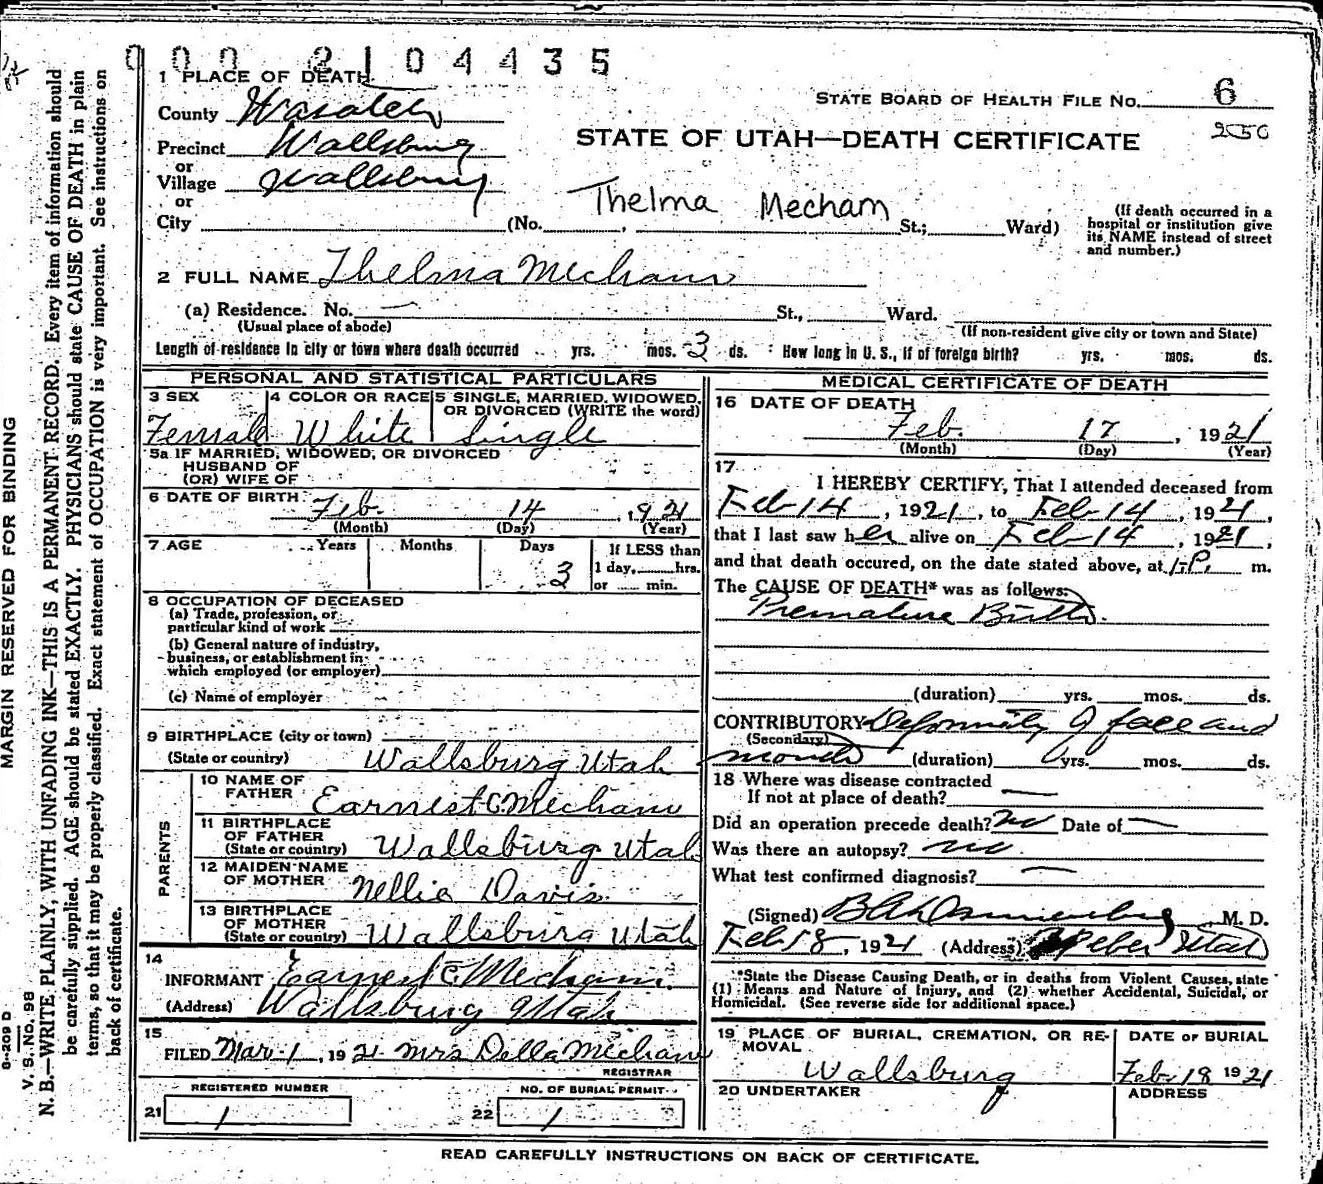 0 0 0 2 1 0 4 4 3 5
1 PLACE OF DEATH
County Wasatch
STATE BOARD OF HEALTH FILE NO. 6
250
Precinct Wallsburg
STATE OF UTAH—DEATH CERTIFICATE
or
Village Wallsburg
or
Thelma Mecham
City (No. , St.; Ward)
(If death occurred in a hospital or institution give its NAME instead of street and number.)
2 FULL NAME Thelma Mecham
(a) Residence. No. — St., Ward.
(Usual place of abode) (If non-resident give city or town and State)
Length of residence in city or town where death occurred yrs. mos. 3 ds. How long in U. S., if of foreign birth? yrs. mos. ds.
PERSONAL AND STATISTICAL PARTICULARS
3 SEX
Female
4 COLOR OR RACE
White
5 SINGLE, MARRIED, WIDOWED,
OR DIVORCED (WRITE the word)
Single
5a IF MARRIED, WIDOWED, OR DIVORCED
HUSBAND OF
(OR) WIFE OF
6 DATE OF BIRTH Feb. 14 , 1921
(Month) (Day) (Year)
7 AGE Years Months Days If LESS than
1 day, hrs.
3 or min.
8 OCCUPATION OF DECEASED
(a) Trade, profession, or
particular kind of work
(b) General nature of industry,
business, or establishment in
which employed (or employer)
(c) Name of employer
9 BIRTHPLACE (city or town)
(State or country) Wallsburg Utah
PARENTS
10 NAME OF
FATHER Earnest C. Mecham
11 BIRTHPLACE
OF FATHER
(State or country) Wallsburg Utah
12 MAIDEN NAME
OF MOTHER Nellie Davis
13 BIRTHPLACE
OF MOTHER
(State or country) Wallsburg Utah
14
INFORMANT Earnest C. Mecham.
(Address) Wallsburg Utah
15
FILED Mar 1 , 1921 Mrs Della Mecham
REGISTRAR
REGISTERED NUMBER NO. OF BURIAL PERMIT
21 1 22 1
MEDICAL CERTIFICATE OF DEATH
16 DATE OF DEATH
Feb. 17 , 1921
(Month) (Day) (Year)
17
I HEREBY CERTIFY, That I attended deceased from
Feb 14 , 1921 , to Feb 14 , 1921 ,
that I last saw her alive on Feb 14 , 1921 ,
and that death occured, on the date stated above, at 1-P. m.
The CAUSE OF DEATH* was as follows:
Premature Birth.
(duration) yrs. mos. ds.
CONTRIBUTORY Deformity of face and
(Secondary)
mouth (duration) yrs. mos. ds.
18 Where was disease contracted
If not at place of death? —
Did an operation precede death? no Date of —
Was there an autopsy? no.
What test confirmed diagnosis? —
(Signed) M. D.
Feb 18 , 1921 (Address) Heber Utah
*State the Disease Causing Death, or in deaths from Violent Causes, state
(1) Means and Nature of Injury, and (2) whether Accidental, Suicidal, or
Homicidal. (See reverse side for additional space.)
19 PLACE OF BURIAL, CREMATION, OR RE-
MOVAL
Wallsburg
DATE OF BURIAL
Feb 18 1921
20 UNDERTAKER
ADDRESS
READ CAREFULLY INSTRUCTIONS ON BACK OF CERTIFICATE.
MARGIN RESERVED FOR BINDING
V. S. No. 98
N. B.—WRITE PLAINLY, WITH UNFADING INK—THIS IS A PERMANENT RECORD. Every item of information should
be carefully supplied. AGE should be stated EXACTLY. PHYSICIANS should state CAUSE OF DEATH in plain
terms, so that it may be properly classified. Exact statement of OCCUPATION is very important. See instructions on
back of certificate.